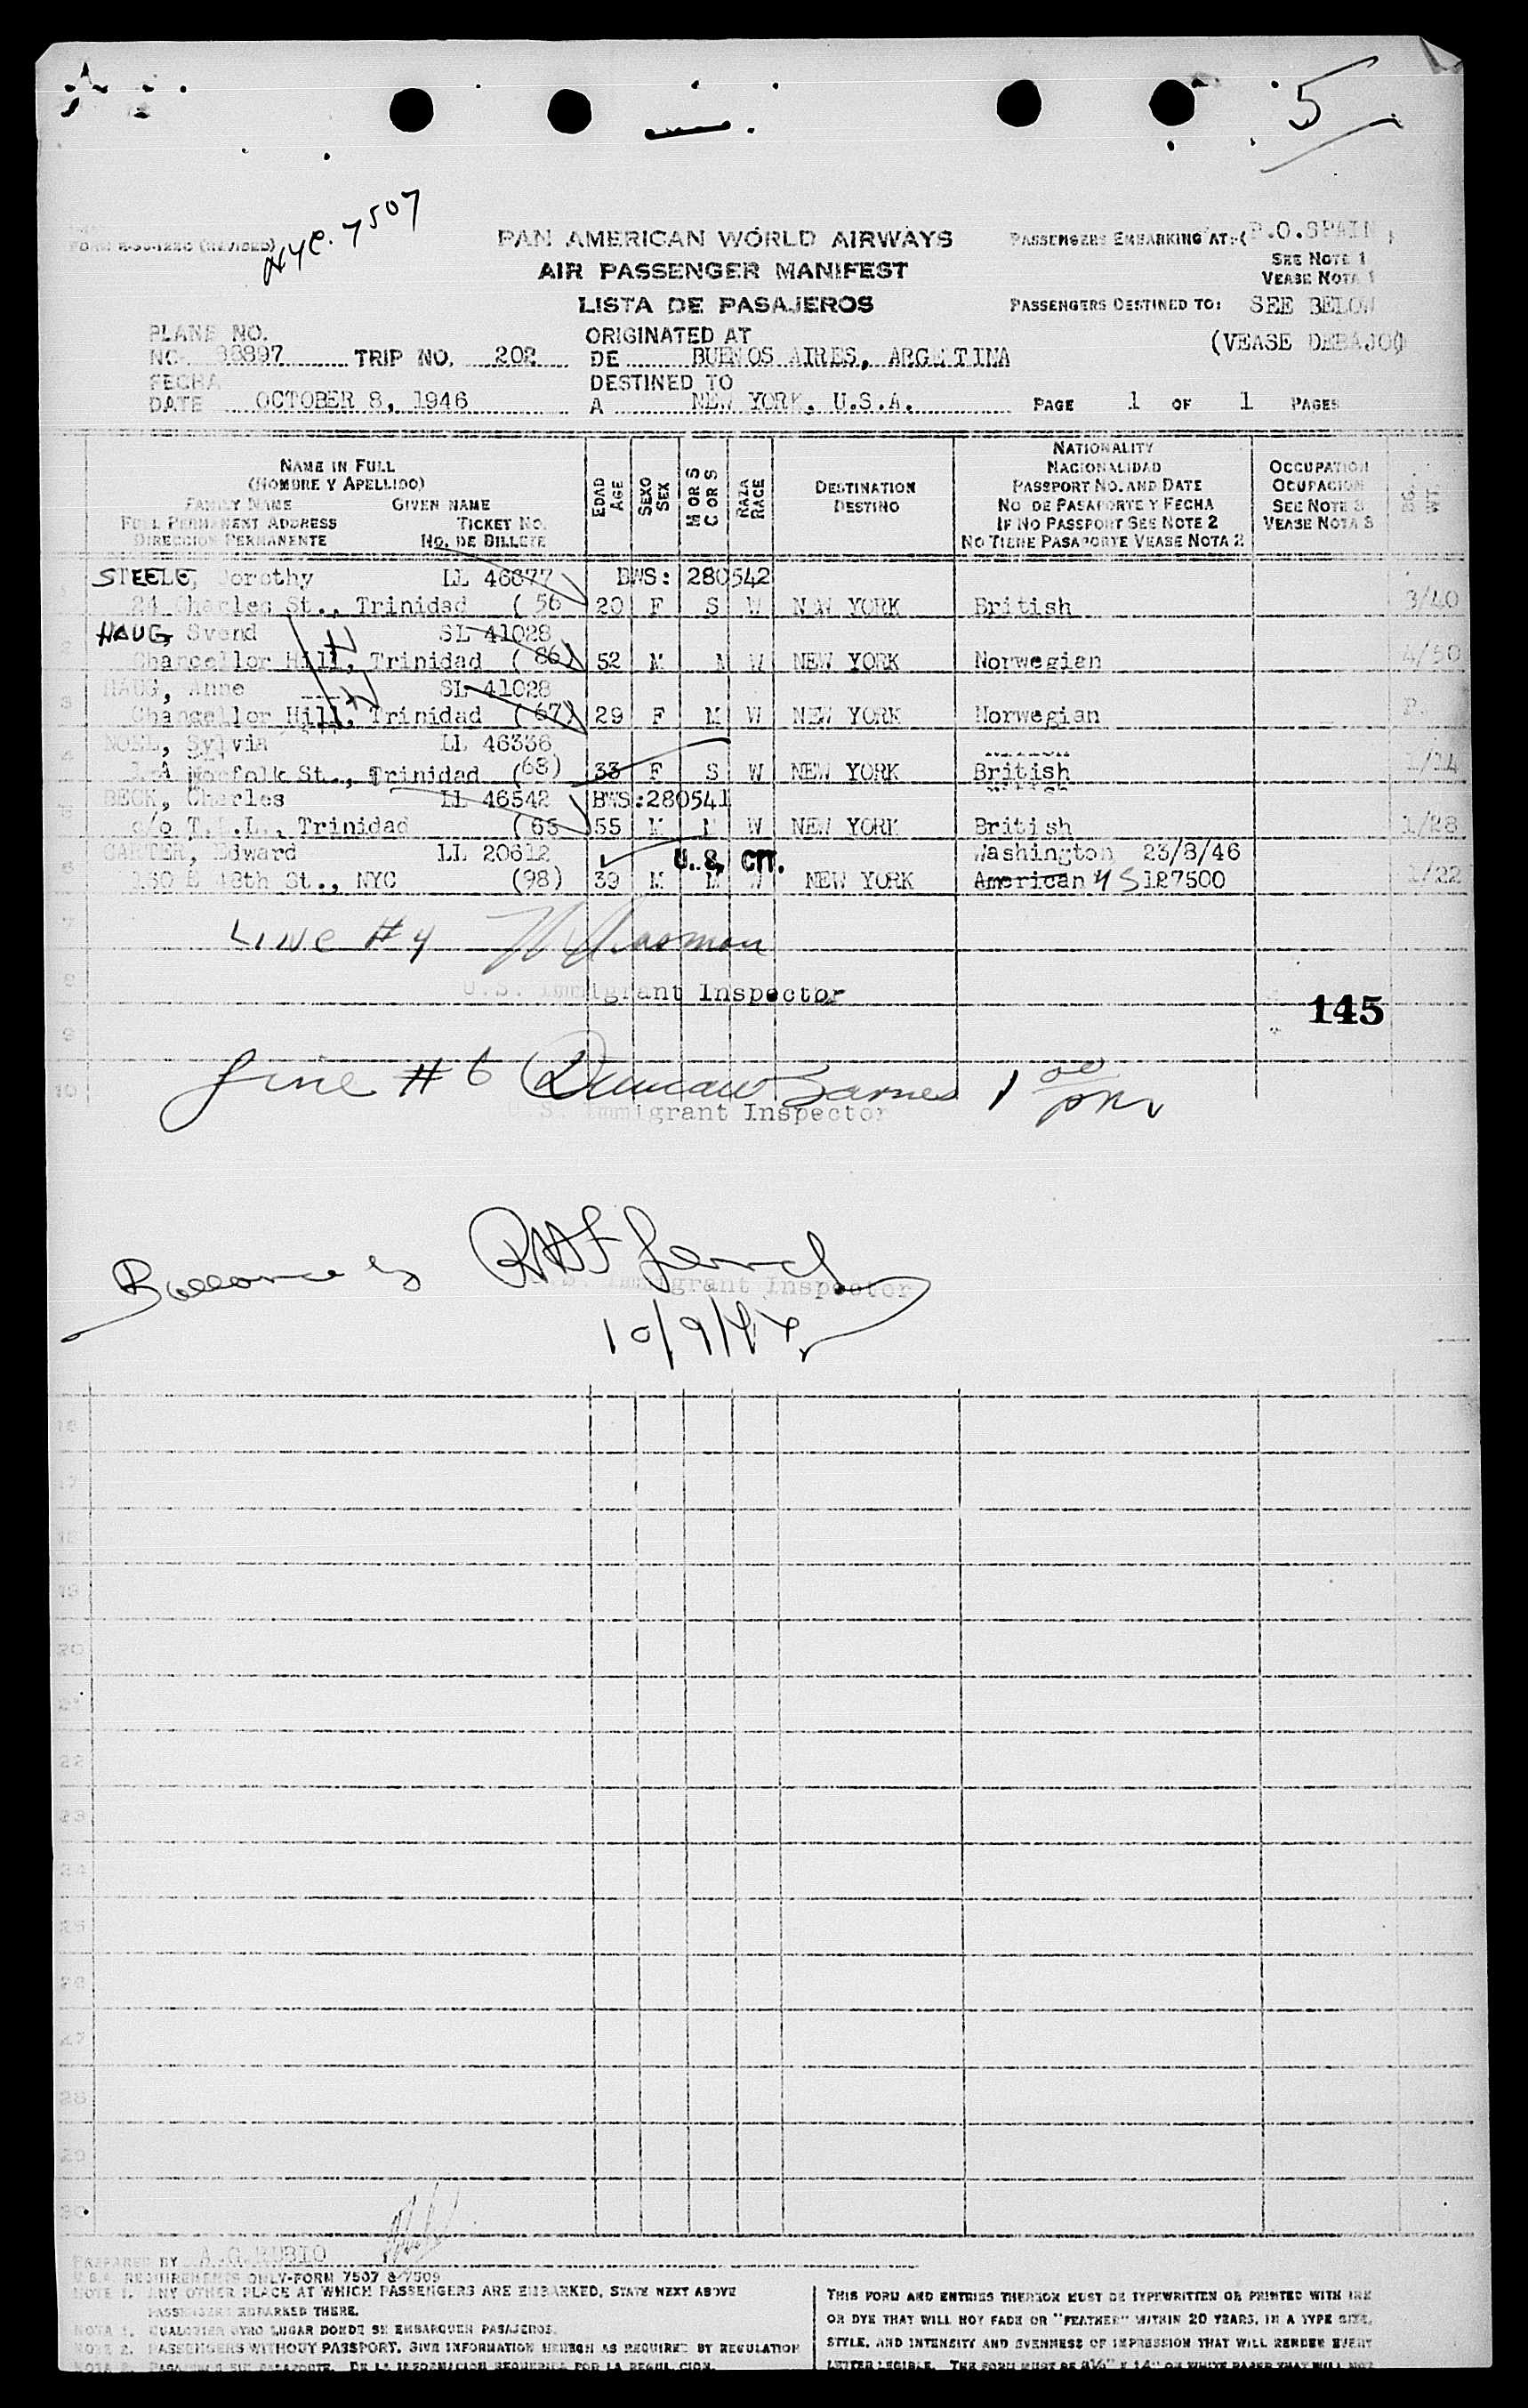 5
NYC. 7507
PAN AMERICAN WORLD AIRWAYS
AIR PASSENGER MANIFEST
LISTA DE PASAJEROS
PASSENGERS EMBARKING AT:(P.O.SPAIN)
SEE NOTE 1
VEASE NOTA 1
PASSENGERS DESTINED TO: SEE BELOW
(VEASE DEBAJO)
PLANE NO.
NC 88897 TRIP NO. 202
ORIGINATED AT
DE BUENOS AIRES, ARGETINA
FECHA
DATE OCTOBER 8, 1946
DESTINED TO
A NEW YORK, U.S.A.
PAGE 1 OF 1 PAGES
NAME IN FULL
(NOMBRE Y APELLIDO)
FAMILY NAME GIVEN NAME
FULL PERMANENT ADDRESS TICKET NO.
DIRECCION PERMANENTE NO. DE BILLETE
EDAD AGE
SEXO SEX
M OR S C OR S
RAZA RACE
DESTINATION
DESTINO
NATIONALITY
NACIONALIDAD
PASSPORT NO. AND DATE
NO DE PASAPORTE Y FECHA
IF NO PASSPORT SEE NOTE 2
NO TIENE PASAPORTE VEASE NOTA 2
OCCUPATION
OCUPACION
SEE NOTE 3
VEASE NOTA 3
STEELE, Dorothy LL 46877 BWS: 280542
24 Charles St., Trinidad (56 20 F S W NEW YORK British 3/40
HAUG, Svend SL 41028
Chancellor Hill, Trinidad (86) 52 M M W NEW YORK Norwegian 4/50
3 HAUG, Anne SL 41028
Chancellor Hill, Trinidad (67) 29 F M W NEW YORK Norwegian P.
4 NOEL, Sylvia LL 46336
Norfolk St., Trinidad (68) 33 F S W NEW YORK British
5 BECK, Charles LL 46542 BWS:280541
c/o T.L.L., Trinidad (65 55 M M W NEW YORK British 1/28
6 CARTER, Edward LL 20612 U.S. CIT. Washington 23/8/46
48th St., NYC (98) 39 M M W NEW YORK American 127500
7
LINE #4
8
U.S. Immigrant Inspector
145
9
Line #6 Duncan Barnes 1 00 pm
10
U.S. Immigrant Inspector
Balance by
U.S. Immigrant Inspector
10/9/
16
17
18
19
20
21
22
23
24
25
26
27
28
29
30
PREPARED BY A.G.RUBIO
U.S.A. REQUIREMENTS ONLY-FORM 7507 & 7509
NOTE 1. ANY OTHER PLACE AT WHICH PASSENGERS ARE EMBARKED, STATE NEXT ABOVE
PASSENGERS EMBARKED THERE.
NOTA 1. CUALQUIER OTRO LUGAR DONDE SE EMBARQUEN PASAJEROS.
NOTE 2. PASSENGERS WITHOUT PASSPORT. GIVE INFORMATION HEREON AS REQUIRED BY REGULATION
NOTA 2. PASAJEROS SIN PASAPORTE. DE LA INFORMACION REQUERIDA POR LA REGULACION.
THIS FORM AND ENTRIES THEREON MUST BE TYPEWRITTEN OR PRINTED WITH INK
OR DYE THAT WILL NOT FADE OR "FEATHER" WITHIN 20 YEARS, IN A TYPE SIZE,
STYLE, AND INTENSITY AND EVENNESS OF IMPRESSION THAT WILL RENDER EVERY
LETTER LEGIBLE. THE FORM MUST BE 8½" X 14" ON WHITE PAPER THAT WILL NOT